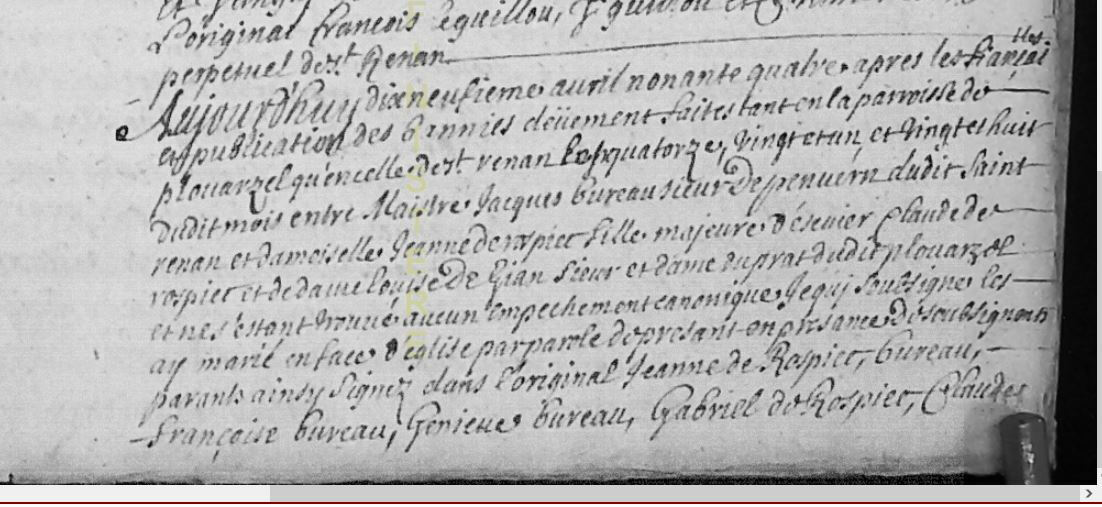 L'original francois leguillou,
perpetuel de st Renan
Aujourdhuy dixneufieme avril nonante quatre apres les fiançailles
et publication des bannies deüement faites tant en la parroisse de
plouarzel qu'en celle de st renan les quatorze, vingt et un, et vingt et huit
dudit mois entre Maistre Jacques bureau sieur de penvern dudit Saint
renan et damoiselle Jeanne de rospiec fille majeure d'escuier Claude de
rospiec et de dame Louise De Gian sieur et dame du prat dudit plouarzel
et ne s'estant trouvé aucun empechement canonique Je qui soubsigne les
ay marié en face d'eglise par parole de presant en presance de soubsignants
parants ainsy signez dans l'original Jeanne de Rospiec, bureau,
françoise bureau, Genieve bureau, Gabriel de Rospiec, Claude